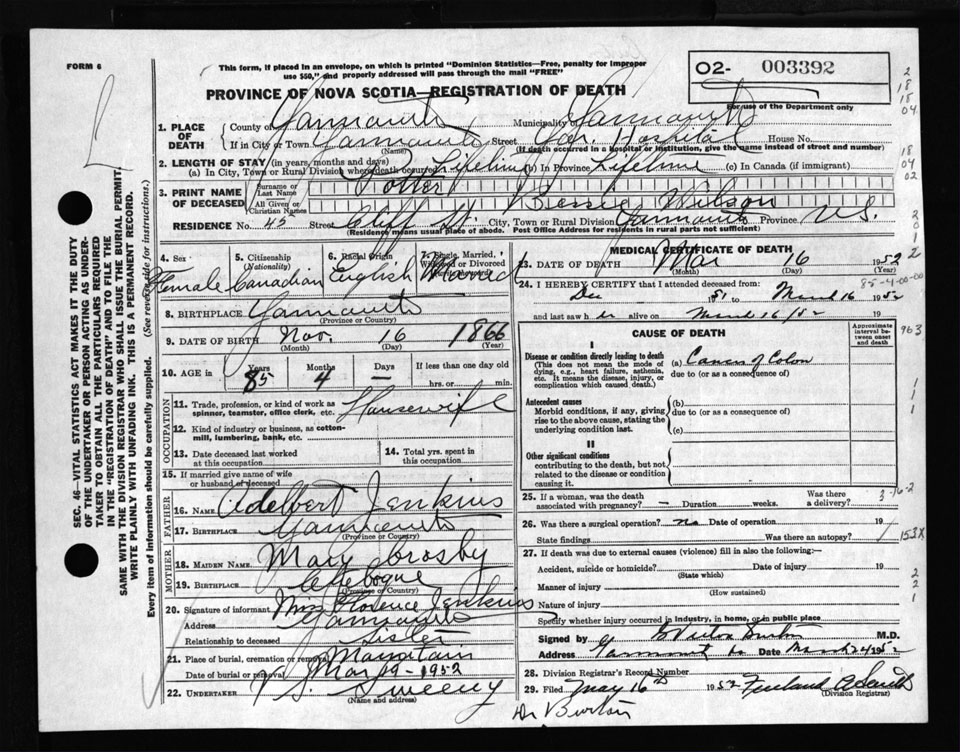 FORM 6
This form, if placed in an envelope, on which is printed "Dominion Statistics—Free, penalty for improper
use $50," and properly addressed will pass through the mail "FREE"
O2- 003392
For use of the Department only
PROVINCE OF NOVA SCOTIA—REGISTRATION OF DEATH
1. PLACE OF DEATH { County of Yarmouth Municipality Yarmouth
If in City or Town Yarmouth Street Hospital House No.
(Name) (If death occurred in a Hospital or institution, give the name instead of street and number)
2. LENGTH OF STAY (in years, months and days)
(a) In City, Town or Rural Division where death occurred Lifetime (b) In Province Lifetime (c) In Canada (if immigrant)
3. PRINT NAME OF DECEASED { Surname or Last Name Potter
All Given or Christian Names Bessie Wilson
RESIDENCE No. 45 Street Cliff St. City, Town or Rural Division Yarmouth Province N.S.
(Residence means usual place of abode. Post Office Address for residents in rural parts not sufficient)
4. Sex Female
5. Citizenship (Nationality) Canadian
6. Racial Origin English
7. Single, Married, Widowed or Divorced
8. BIRTHPLACE Yarmouth
(Province or Country)
9. DATE OF BIRTH Nov. 16 1866
(Month) (Day) (Year)
10. AGE in { Years 85 Months 4 Days — If less than one day old
hrs. or min.
OCCUPATION
11. Trade, profession, or kind of work as spinner, teamster, office clerk, etc. Housewife
12. Kind of industry or business, as cotton-mill, lumbering, bank, etc.
13. Date deceased last worked at this occupation
14. Total yrs. spent in this occupation
15. If married give name of wife or husband of deceased
FATHER
16. NAME Adelbert Jenkins
17. BIRTHPLACE Yarmouth
(Province or Country)
MOTHER
18. MAIDEN NAME Mary Crosby
19. BIRTHPLACE
(Province or Country)
20. Signature of informant Mrs Florence Jenkins
Address Yarmouth
Relationship to deceased Sister
21. Place of burial, cremation or removal Mountain
Date of burial or removal Mar 19-1952
22. UNDERTAKER V S. Sweeny
(Name and address)
MEDICAL CERTIFICATE OF DEATH
23. DATE OF DEATH Mar 16 1952
(Month) (Day) (Year)
24. I HEREBY CERTIFY that I attended deceased from:
Dec 1951 to March 16 1952
and last saw her alive on March 16/52
85-4-00-00
CAUSE OF DEATH
Approximate interval between onset and death
I
Disease or condition directly leading to death
(This does not mean the mode of dying, e.g., heart failure, asthenia, etc. It means the disease, injury, or complication which caused death.)
(a) Cancer of Colon
due to (or as a consequence of)
Antecedent causes
Morbid conditions, if any, giving rise to the above cause, stating the underlying condition last.
(b)
due to (or as a consequence of)
(c)
II
Other significant conditions
contributing to the death, but not related to the disease or condition causing it.
25. If a woman, was the death associated with pregnancy? — Duration weeks. Was there a delivery?
26. Was there a surgical operation? no Date of operation 19
State findings Was there an autopsy?
27. If death was due to external causes (violence) fill in also the following:—
Accident, suicide or homicide? Date of injury 19
(State which)
Manner of injury
(How sustained)
Nature of injury
Specify whether injury occurred in industry, in home, or in public place
Signed by G Victor Burton M.D.
Address Yarmouth Date March 24 1952
28. Division Registrar's Record Number
29. Filed May 16th 1952
(Division Registrar)
Dr Burton
SEC. 46—VITAL STATISTICS ACT MAKES IT THE DUTY
OF THE UNDERTAKER OR PERSON ACTING AS UNDER-
TAKER TO OBTAIN ALL THE PARTICULARS REQUIRED
IN THE "REGISTRATION OF DEATH" AND TO FILE THE
SAME WITH THE DIVISION REGISTRAR WHO SHALL ISSUE THE BURIAL PERMIT.
WRITE PLAINLY WITH UNFADING INK. THIS IS A PERMANENT RECORD.
Every item of information should be carefully supplied. (See reverse side for instructions.)
2
18
15
04
18
04
02
2
0
1
2
963
1
1
1
3-16-2
153X
2
2
1